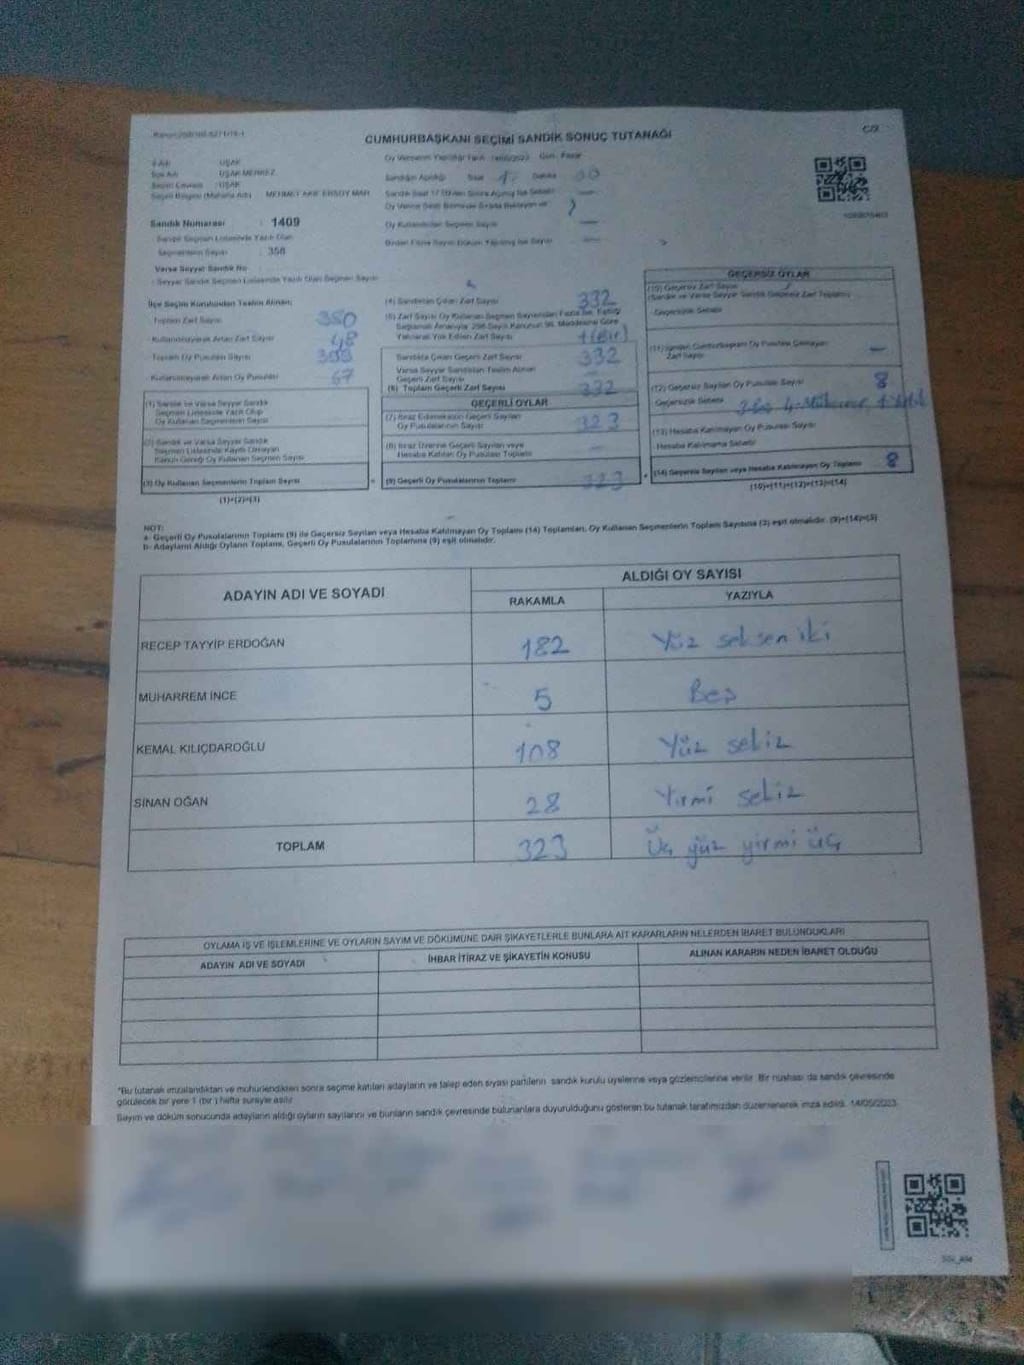 C/2
CUMHURBAŞKANI SEÇİMİ SANDIK SONUÇ TUTANAĞI
İl Adı : UŞAK
İlçe Adı : UŞAK MERKEZ
Seçim Çevresi : UŞAK
Seçim Bölgesi (Mahalle Adı) : MEHMET AKİF ERSOY MAH
Sandık Numarası : 1409
Sandık Seçmen Listesinde Yazılı Olan
Seçmenlerin Sayısı : 358
Varsa Seyyar Sandık No
Seyyar Sandık Seçmen Listesinde Yazılı Olan Seçmen Sayısı
Oy Vermenin Yapıldığı Tarih 14/05/2023 Gün: Pazar
Sandığın Açıldığı Saat Dakika
Oy Kullandırılan Seçmen Sayısı —
İlçe Seçim Kurulundan Teslim Alınan;
Toplam Zarf Sayısı 380
Kullanılmayarak Artan Zarf Sayısı 48
Toplam Oy Pusulası Sayısı
Kullanılmayarak Artan Oy Pusulası
(1) Sandık ve Varsa Seyyar Sandık
Seçmen Listesinde Yazılı Olup
Oy Kullanan Seçmenlerin Sayısı
(2) Sandık ve Varsa Seyyar Sandık
Seçmen Listesinde Kayıtlı Olmayan
Kanun Gereği Oy Kullanan Seçmen Sayısı
(3) Oy Kullanan Seçmenlerin Toplam Sayısı
(1)+(2)=(3)
(4) Sandıktan Çıkan Zarf Sayısı 332
(5) Zarf Sayısı Oy Kullanan Seçmen Sayısından Fazla İse, Eşitliği
Sağlamak Amacıyla 298 Sayılı Kanunun 98. Maddesine Göre
Yakılarak Yok Edilen Zarf Sayısı 1 (Bir)
Sandıkta Çıkan Geçerli Zarf Sayısı 332
Varsa Seyyar Sandıktan Teslim Alınan
Geçerli Zarf Sayısı
(6) Toplam Geçerli Zarf Sayısı 332
GEÇERLİ OYLAR
(7) İtiraz Edilmeksizin Geçerli Sayılan
Oy Pusulalarının Sayısı 323
(8) İtiraz Üzerine Geçerli Sayılan veya
Hesaba Katılan Oy Pusulası Toplamı —
(9) Geçerli Oy Pusulalarının Toplamı 323
GEÇERSİZ OYLAR
(10) Geçersiz Zarf Sayısı
(Sandık ve Varsa Seyyar Sandık Geçersiz Zarf Toplamı)
Geçersizlik Sebebi
Zarf Sayısı —
(12) Geçersiz Sayılan Oy Pusulası Sayısı 8
Geçersizlik Sebebi
(13) Hesaba Katılmayan Oy Pusulası Sayısı
Hesaba Katılmama Sebebi
(14) Geçersiz Sayılan veya Hesaba Katılmayan Oy Toplamı 8
(10)+(11)+(12)+(13)=(14)
NOT:
a- Geçerli Oy Pusulalarının Toplamı (9) ile Geçersiz Sayılan veya Hesaba Katılmayan Oy Toplamı (14) Toplamları, Oy Kullanan Seçmenlerin Toplam Sayısına (3) eşit olmalıdır. (9)+(14)=(3)
b- Adayların Aldığı Oyların Toplamı, Geçerli Oy Pusulalarının Toplamına (9) eşit olmalıdır.
ADAYIN ADI VE SOYADI
ALDIĞI OY SAYISI
RAKAMLA YAZIYLA
RECEP TAYYİP ERDOĞAN 182 Yüz seksen iki
MUHARREM İNCE 5 Beş
KEMAL KILIÇDAROĞLU 108 Yüz sekiz
SİNAN OĞAN 28 Yirmi sekiz
TOPLAM 323 Üç yüz yirmi üç
OYLAMA İŞ VE İŞLEMLERİNE VE OYLARIN SAYIM VE DÖKÜMÜNE DAİR ŞİKAYETLERLE BUNLARA AİT KARARLARIN NELERDEN İBARET BULUNDUKLARI
ADAYIN ADI VE SOYADI İHBAR İTİRAZ VE ŞİKAYETİN KONUSU ALINAN KARARIN NEDEN İBARET OLDUĞU
*Bu tutanak imzalandıktan ve mühürlendikten sonra seçime katılan adayların ve talep eden siyasi partilerin sandık kurulu üyelerine veya gözlemcilerine verilir. Bir nüshası da sandık çevresinde
görülecek bir yere 1 (bir) hafta süreyle asılır.
Sayım ve döküm sonucunda adayların aldığı oyların sayılarını ve bunların sandık çevresinde bulunanlara duyurulduğunu gösteren bu tutanak tarafımızdan düzenlenerek imza edildi. 14/05/2023